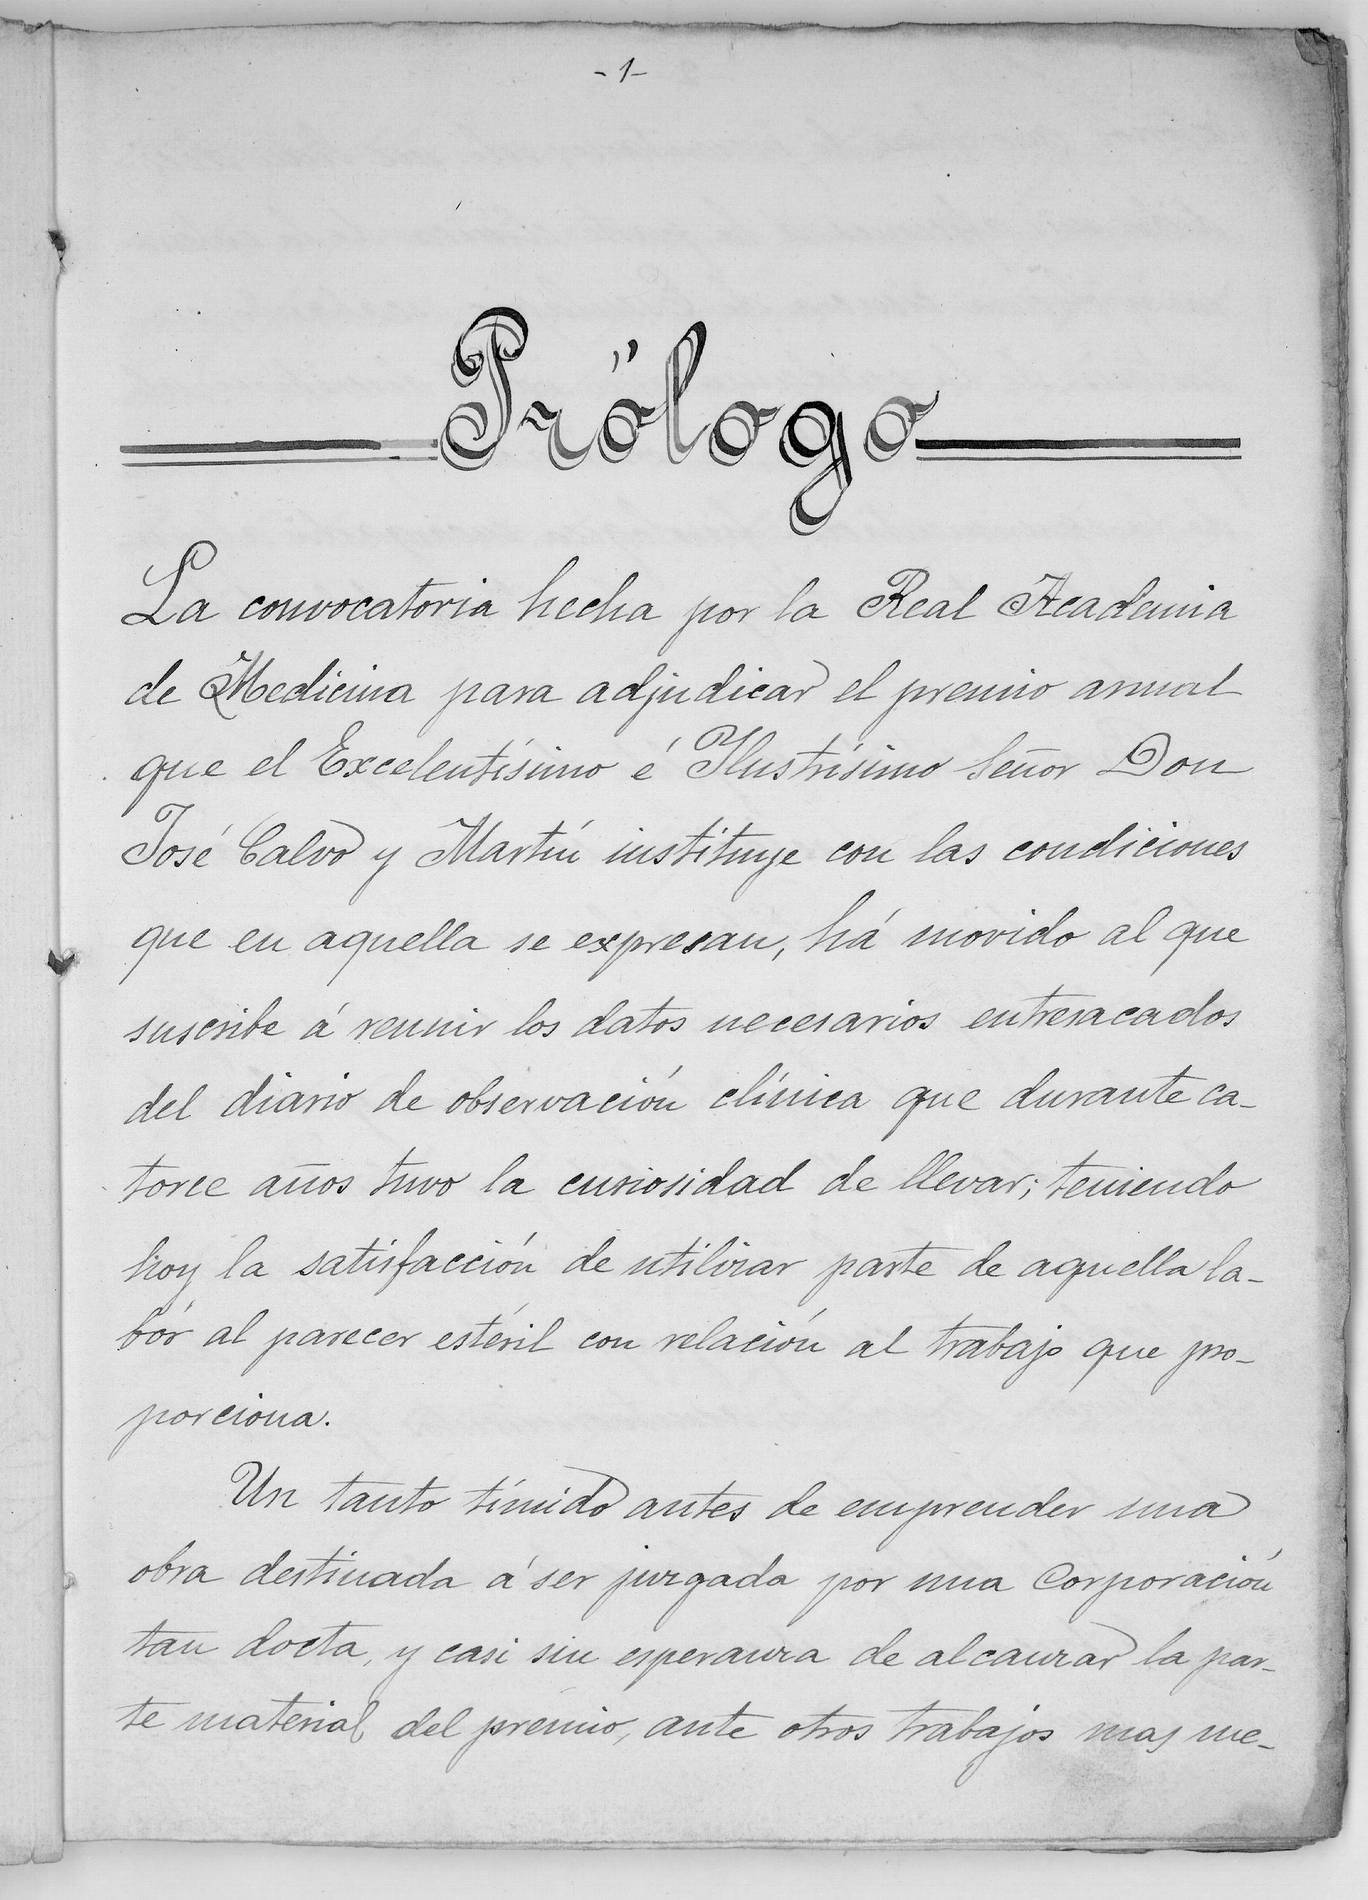 -1-
Prólogo
La convocatoria hecha por la Real Academia
de Medicina para adjudicar el premio anual
que el Excelentísimo é Ilustrísimo Señor Don
José Calvo y Martín instituye con las condiciones
que en aquella se expresan, há movido al que
suscribe á reunir los datos necesarios entresacados
del diario de observación clínica que durante ca-
torce años tuvo la curiosidad de llevar; teniendo
hoy la satisfacción de utilizar parte de aquella la-
bór al parecer estéril con relación al trabajo que pro-
porciona.
Un tanto tímido antes de emprender una
obra destinada á ser juzgada por una Corporación
tan docta, y casi sin esperanza de alcanzar la par-
te material del premio, ante otros trabajos mas me-